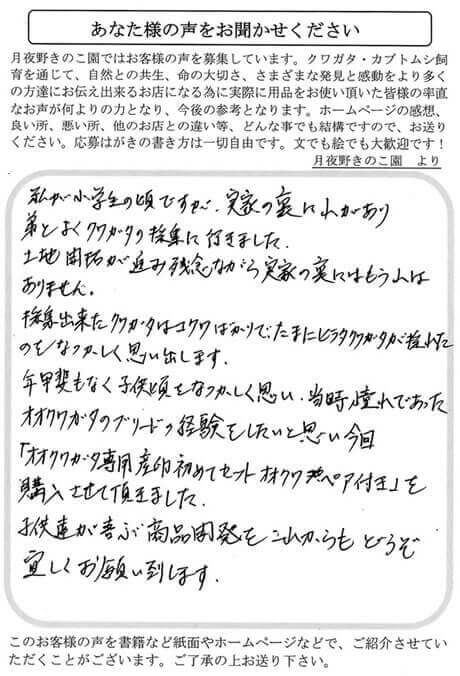 あなた様の声をお聞かせください
月夜野きのこ園ではお客様の声を募集しています。クワガタ・カブトムシ飼
育を通じて、自然との共生、命の大切さ、さまざまな発見と感動をより多く
の方達にお伝え出来るお店になる為に実際に用品をお使い頂いた皆様の率直
なお声が何よりの力となり、今後の参考となります。ホームページの感想、
良い所、悪い所、他のお店との違い等、どんな事でも結構ですので、お送り
ください。応募はがきの書き方は一切自由です。文でも絵でも大歓迎です！
月夜野きのこ園　より
私が小学生の頃ですが、実家の裏に山があり
弟とよくクワガタの採集に行きました。
土地開拓が進み残念ながら実家の裏にはもう山は
ありません。
採集出来たクワガタはコクワばかりで、たまにヒラタクワガタが採れた
のをなつかしく思い出します。
年甲斐もなく子供頃をなつかしく思い、当時憧れであった
オオクワガタのブリードの経験をしたいと思い今回
「オオクワガタ専用産卵初めてセット オオクワ ペア付き」を
購入させて頂きました。
子供達が喜ぶ商品開発をこれからもどうぞ
宜しくお願い致します。
このお客様の声を書籍など紙面やホームページなどで、ご紹介させてい
ただくことがございます。ご了承の上お送り下さい。